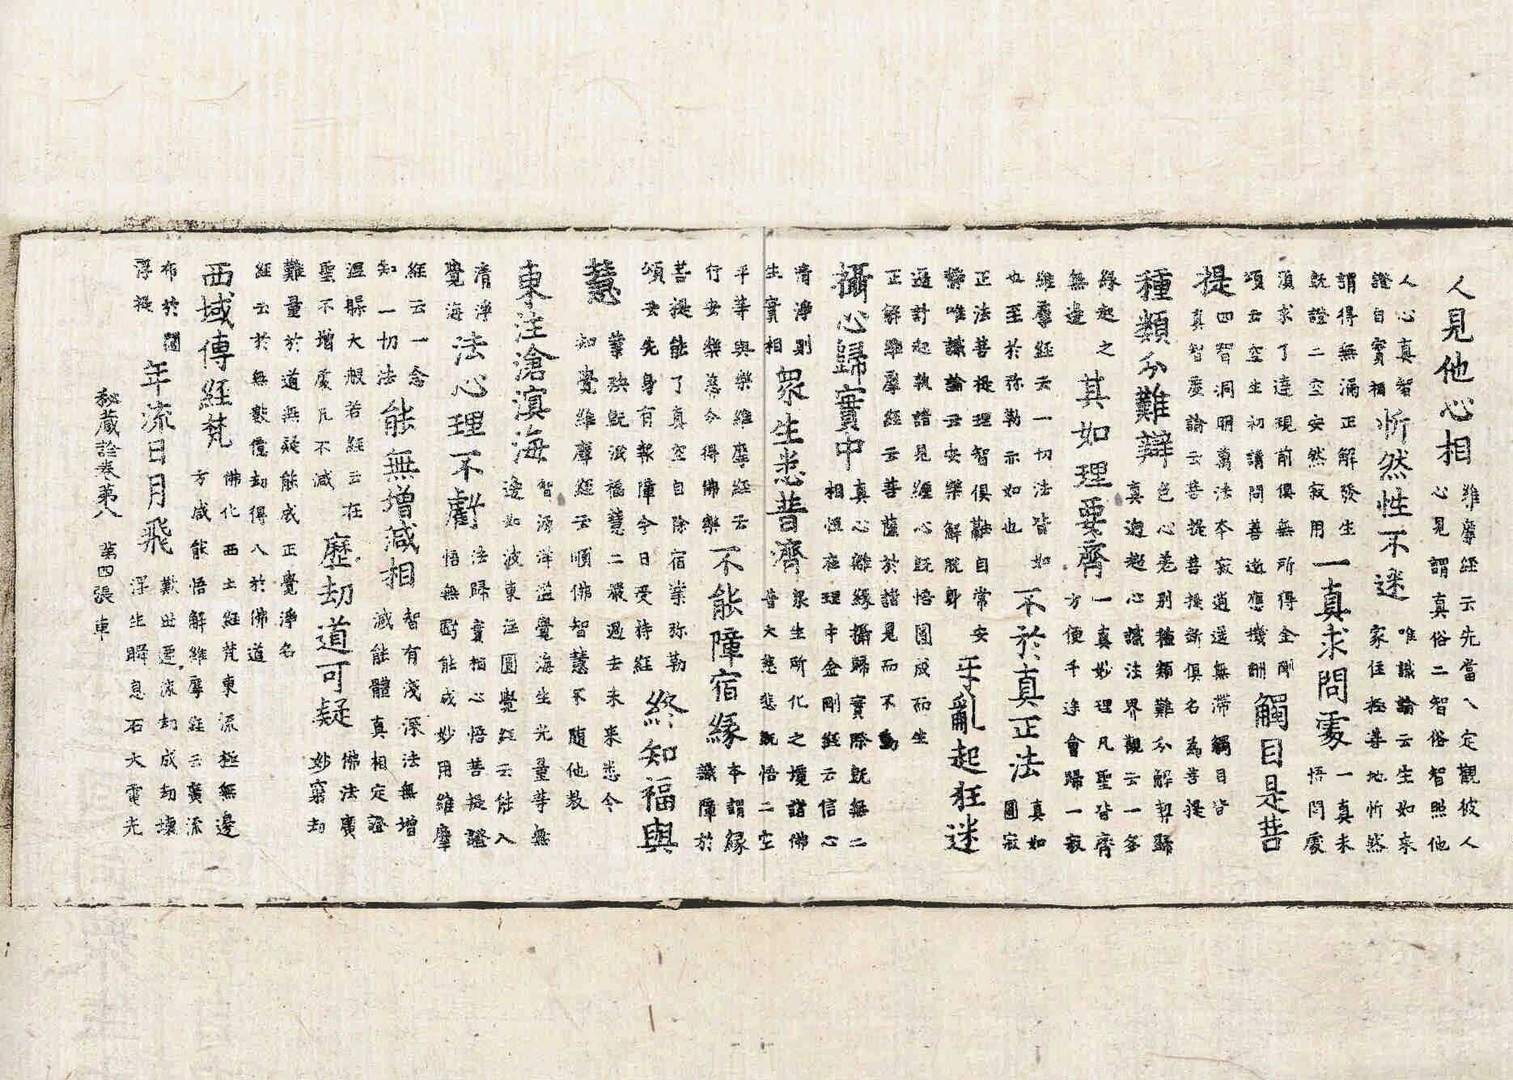 人見他心相 維摩經云先當入定觀彼人
心見謂真俗二智俗智照他
人心真智
證自實相 忻然性不迷 唯識論云生如來
家住極善地忻然
謂得無漏正解發生
既證二空安然寂用 一真求問處 一真未
悟問處
須求了達現前俱無所得金剛
頌云空生初請問善逝應機酬 觸目是菩
提 四智洞明萬法本寂逍遥無滯觸目皆
真智度論云菩提菩提斷俱名為菩提
種類分難辯 色心差別種類難分解契歸
真迴超心識法界觀云一多
緣起之
無邊 其如理要齊 一真妙理凡聖皆齊
方便千途會歸一寂
維摩經云一切法皆如
也至於弥勒亦如也 不於真正法 真如
圓寂
正法菩提理智俱離自常安
靜唯識論云安樂解脫身 乎亂起狂迷
遍計起執諸見纏心既悟圓成而生
正解維摩經云菩薩於諸見而不動
攝心歸實中 真心離緣攝歸實際既無二
相恒在理中金剛經云信心
清淨則
生實相 衆生悉普濟 衆生所化之境諸佛
普大慈悲既悟二空
平等與樂維摩經云
行安樂慈今得佛樂 不能障宿緣 本謂緣
識障於
菩提能了真空自除宿業弥勒
頌云先身有報障今日受持經 終知福與
慧 業殃既泯福慧二嚴過去未來悉令
知覺維摩經云順佛智慧不随他教
東注滄溟海 智源洋溢覺海生光量等無
邊如波東注圓覺經云能入
清淨
覺海 法心理不虧 法歸實相心悟菩提證
悟無虧能成妙用維摩
經云一念
知一切法 能無增減相 智有淺深法無增
減能體真相定證
涅槃大般若經云在
聖不增處凡不減 歷劫道可疑 佛法廣
妙窮劫
難量於道無疑能成正覺淨名
經云於無數億劫得入於佛道
西域傳經梵 佛化西土經梵東流極無邊
方咸能悟解維摩經云廣流
布於閻
浮提 年流日月飛 歎世遷流劫成劫壞
浮生瞬息石火電光
秘藏詮卷第八 第四張 車